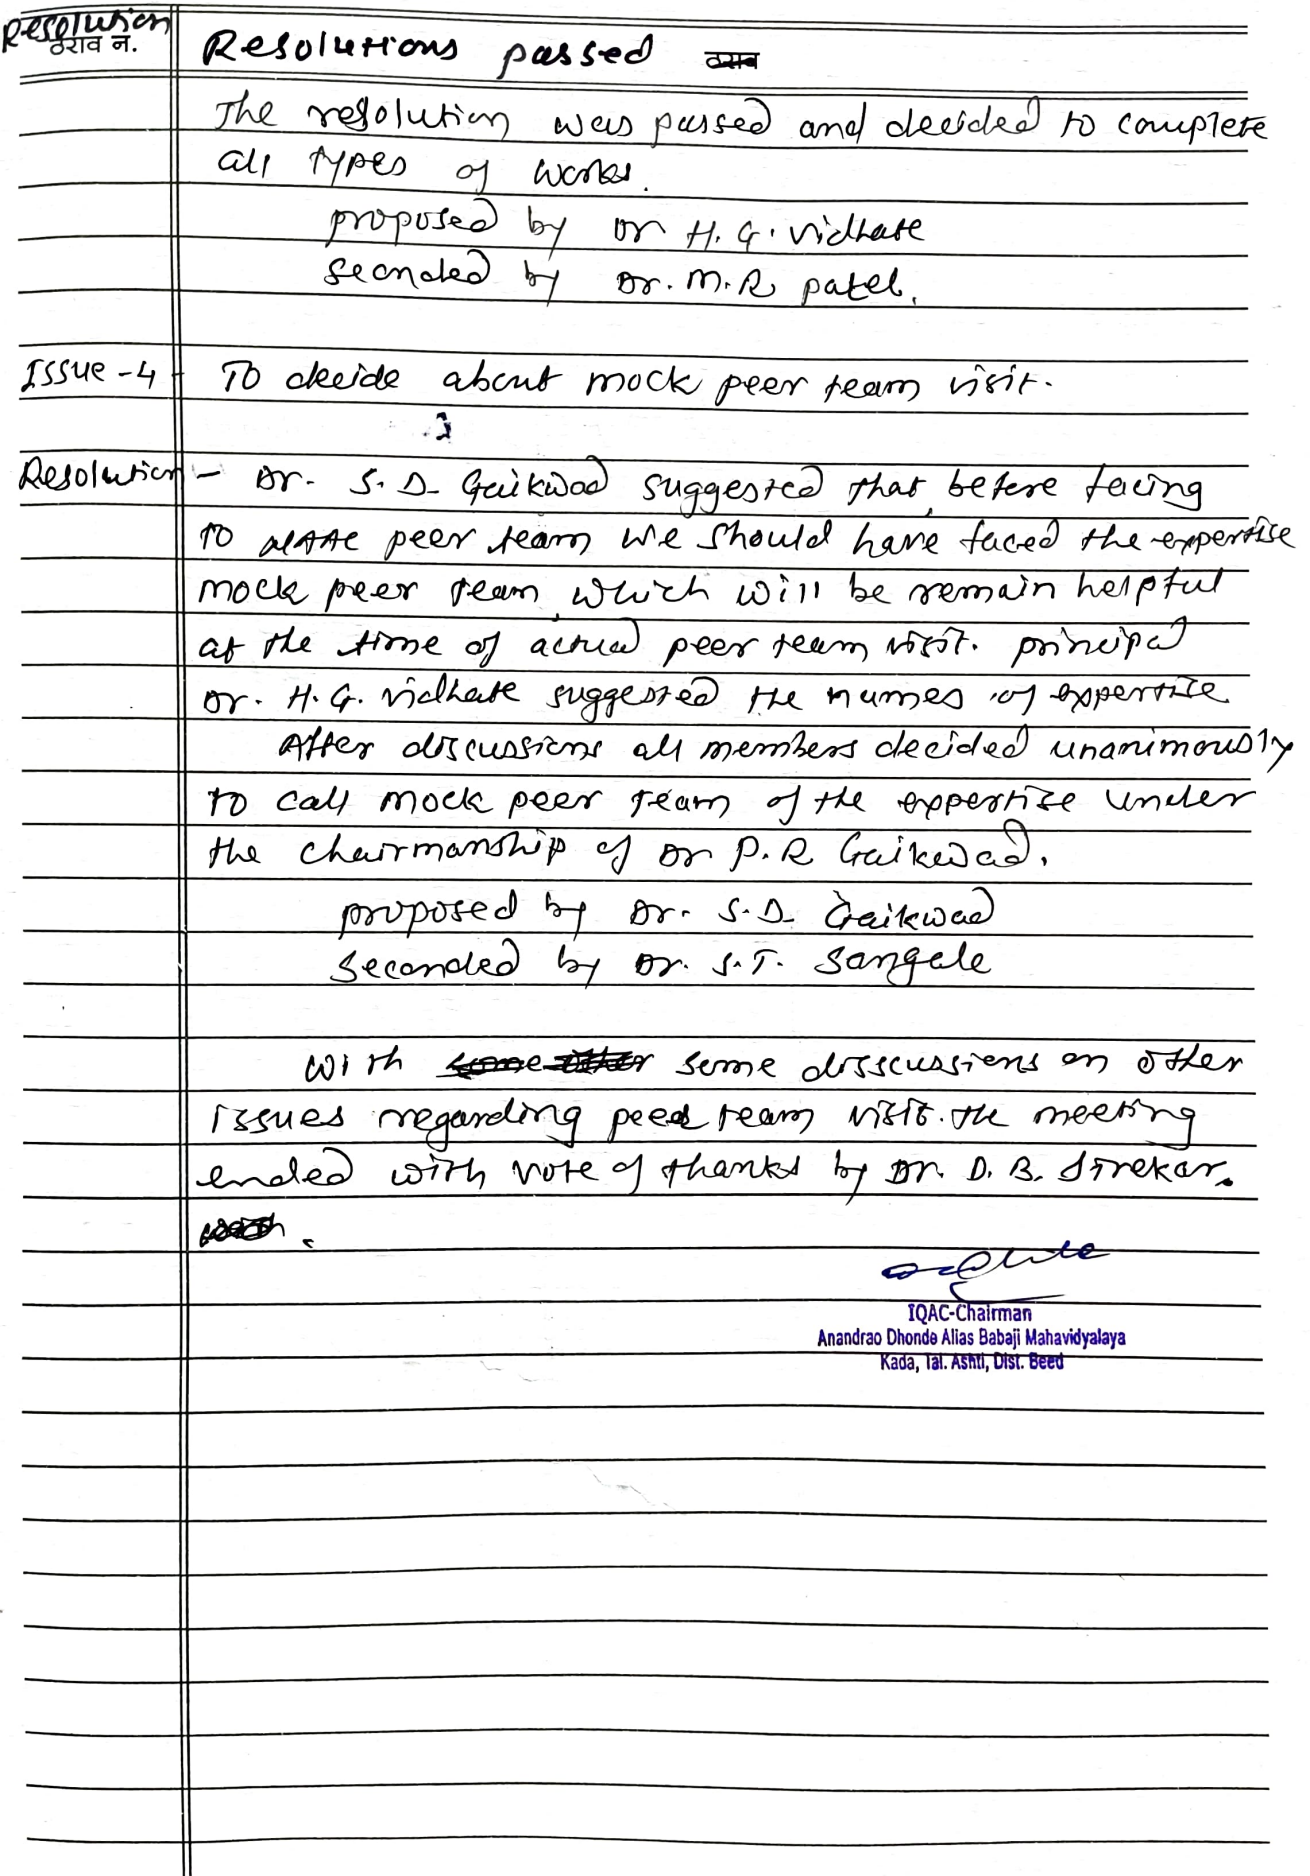 Resolution
ठराव न.
Resolutions passed ठराव
The resolution was passed and decided to complete
all types of works.
proposed by Dr H. G. Vidhate
Seconded by Dr. M.R. patel.
Issue-4 - To decide about mock peer team visit.
Resolution - Dr. S. D. Gaikwad suggested that, before facing
to NAAC peer team we should have faced the expertise
mock peer team, which will be remain helpful
at the time of actual peer team visit. principal
Dr. H. G. Vidhate suggested the names of expertize
After discussions all members decided unanimously
to call mock peer team of the expertize under
the chairmanship of Dr P. R Gaikwad.
proposed by Dr. S.D. Gaikwad
Seconded by Dr. S.T. Sangale
With some other some disscussions on other
issues regarding peer team visit. the meeting
ended with vote of thanks by Dr. D. B. Sirekar.
IQAC-Chairman
Anandrao Dhonde Alias Babaji Mahavidyalaya
Kada, Tal. Ashti, Dist. Beed